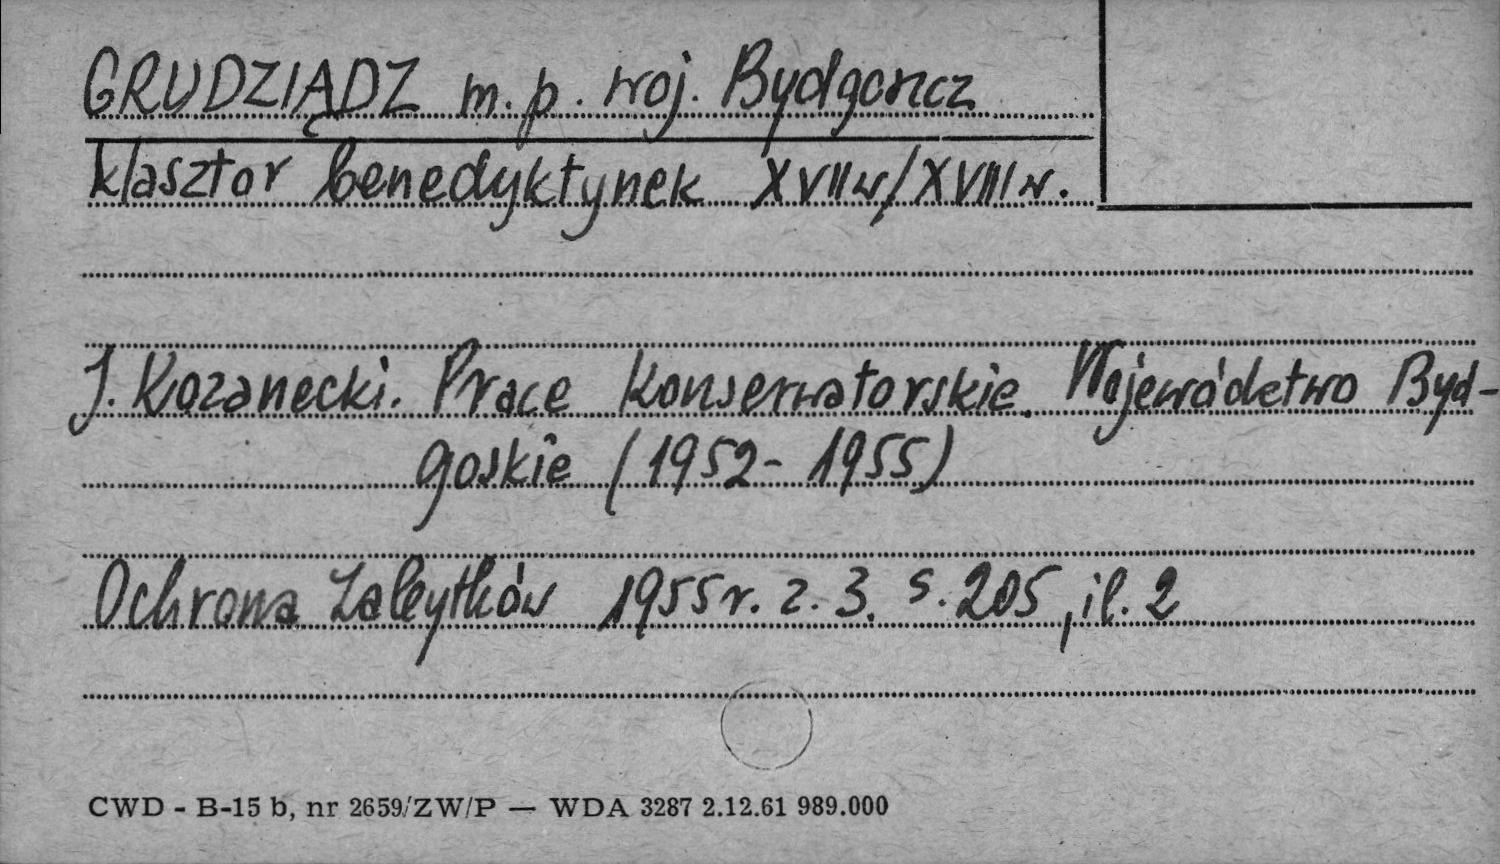 GRUDZIĄDZ m. p. woj. Bydgoszcz
klasztor benedyktynek XVIIw/XVIIIw.
J. Kozanecki. Prace Konserwatorskie. Województwo Byd-
goskie (1952- 1955)
Ochrona Zabytków 1955r. z. 3. s. 205, il. 2
CWD - B-15 b, nr 2659/ZW/P — WDA 3287 2.12.61 989.000